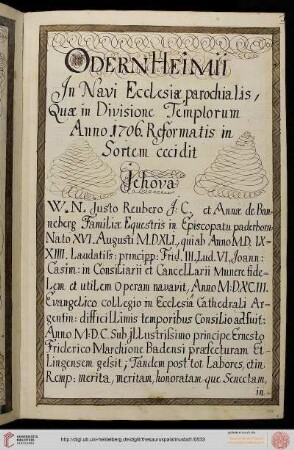 ODERNHEIMII
In Navi Ecclesiæ parochialis,
Quæ in Divisione Templorum
Anno 1706. Reformatis in
Sortem cecidit
Jehova
W. N. Justo Reubero J. C. et Annæ de Ban-
neberg Familiæ Equestris in Episcopatu paderborn:
Nato XVI. Augusti M.D.XLI, qui ab Anno M.D. LX-
XIIII. Laudatiss: princip: Frid. III. Lud. VI. Joann:
Casim: in Consiliarii et Cancellarii Munere fide-
Lem et utilem Operam navavit, Anno M.D.XC.III.
Evangelico collegio in Ecclesiâ Cathedrali Ar-
gentin: difficillimis temporibus Consilio adfuit;
Anno M.D.C. Sub jllustrissimo principe Ernesto
Friderico Marchione Badensi præfecturam Et-
Lingensem gessit; Tandem post tot Labores, et in
Remp: merita, meritam, honoratam que Senectam,
in
http://digi.ub.uni-heidelberg.de/diglit/thesauruspalatinusbd1/0533